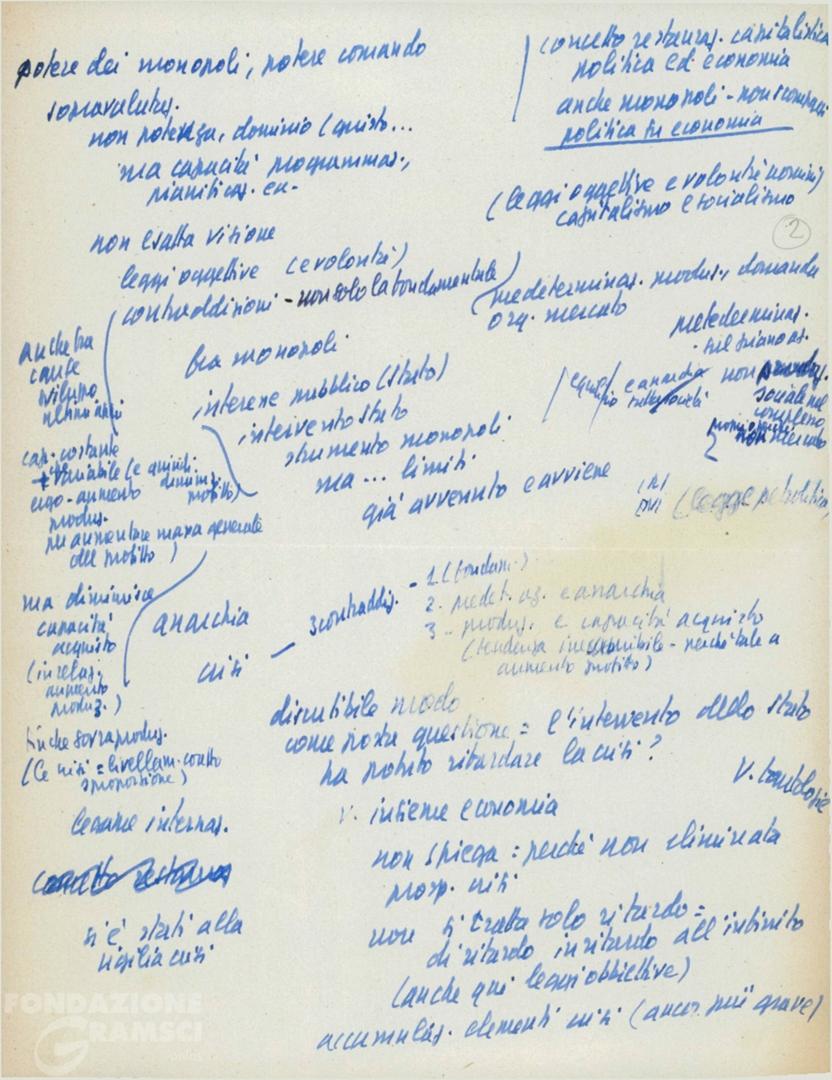 potere dei monopoli, potere comando
sopravalutaz.
non potenza, dominio (questo...
ma capacità programmaz.,
pianificaz. ecc.
concetto restauraz. capitalistica
politica ed economia
anche monopoli - non
politica in economia
(leggi oggettive e volontà uomini)
capitalismo e socialismo
2
non esatta visione
leggi oggettive (e volontà)
contraddizioni - non solo la fondamentale
predeterminaz. produz., domanda
org. mercato
predeterminaz.
nel
e anarchia
nella società
non
sociale nel
complesso
non mercato
fra monopoli
interessi pubblico (stato)
intervento stato
strumento monopoli
ma... limiti
già avvenuto e avviene
IRI
ENI (legge petrolifera)
anche tra
cause
sviluppo
cap. costante
+ variabile (e quindi
ergo - aumento diminuz.
produz. profitto)
per aumentare massa generale
del profitto)
ma diminuisce
capacità
acquisto
(in relaz.
aumento
produz.)
anarchia
crisi
3 contraddiz. - 1 (fondam.)
2. e anarchia
3 - produz. e capacità acquisto
(tendenza - perché tale a
aumento profitto)
anche sovraproduz.
(le crisi = livellam. contro
sproporzione)
legame internaz.
si è stati alla
vigilia crisi
discutibile modo
come posta questione = l'intervento dello stato
ha potuto ritardare la crisi?
V.
V. insieme economia
non spiega: perché non eliminata
prosp. crisi
non si tratta solo ritardo =
di ritardo in ritardo all'infinito
(anche qui leggi obbiettive)
accumulaz. elementi crisi (ancor più grave)
FONDAZIONE
GRAMSCI